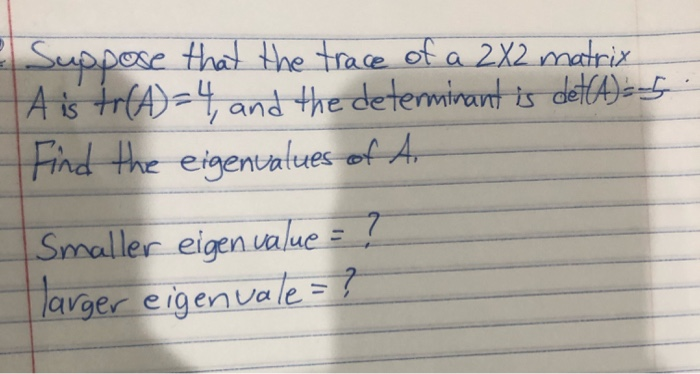 Suppose that the trace of a 2X2 matrix
A is tr(A)=4, and the determinant is det(A)=-5
Find the eigenvalues of A.
Smaller eigenvalue = ?
larger eigenvale = ?